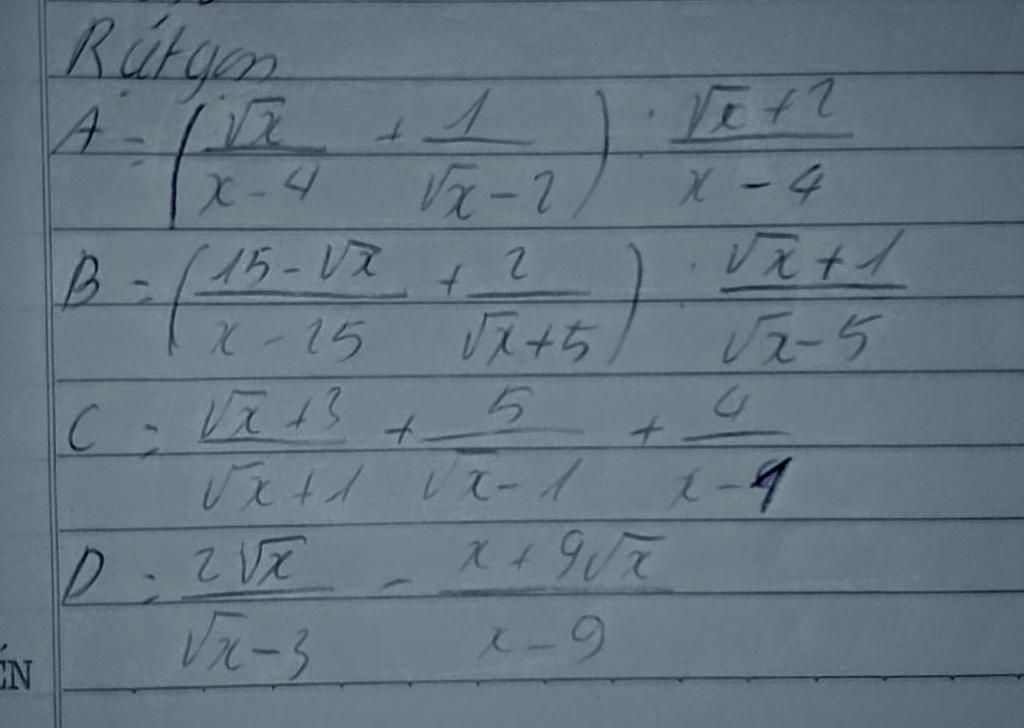 Rút gọn
A = (√x/(x-4) + 1/(√x-2)) · (√x+2)/(x-4)
B = ((15-√x)/(x-25) + 2/(√x+5)) · (√x+1)/(√x-5)
C = (√x+3)/(√x+1) + 5/(√x-1) + 4/(x-1)
D = 2√x/(√x-3) - (x+9√x)/(x-9)
ÉN